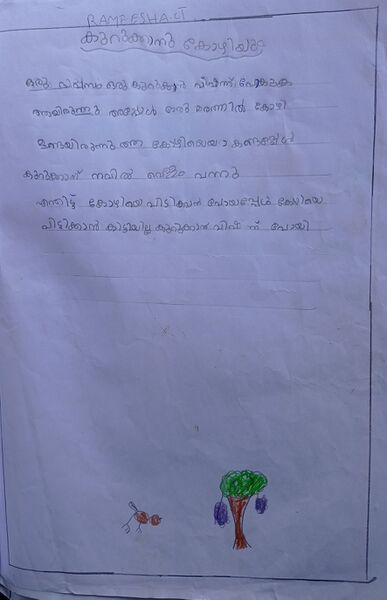 RAMEESHA.CT
കുറുക്കാനു കോഴിയും
ഒരു ദിവസം ഒരു കുറുക്കൻ വിശന്ന് പോകുക
തയിരുന്നു അപ്പോൾ ഒരു മരത്തിൽ കോഴി
ഉണ്ടയിരുന്നു ആ കോഴിയെയാ കണ്ടപ്പോൾ
കുറുക്കാന് നവിൽ വെള്ളം വന്നു
എന്നിട്ട് കോഴിയെ പിടിക്കാൻ പോയപ്പോൾ കോഴിയെ
പിടിക്കാൻ കിട്ടിയില്ല കുറുക്കാൻ വിഷ ന് പോയി